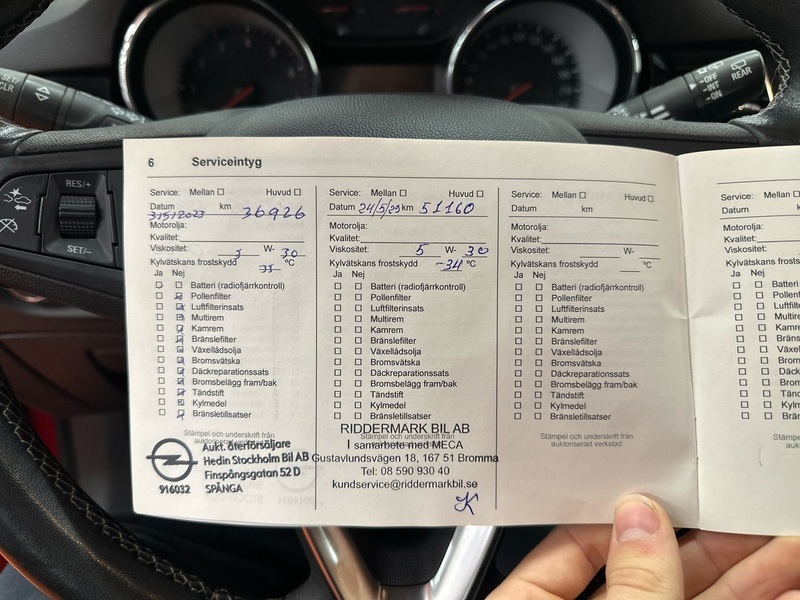 SET/
CLR
-OFF
-INT
-ON
REAR
RES/+
SET/–
6 Serviceintyg
Service: Mellan ☐ Huvud ☐
Datum km
31512023 36926
Motorolja:
Kvalitet:
Viskositet: 5 W- 30
Kylvätskans frostskydd 35 °C
Ja Nej
Batteri (radiofjärrkontroll)
Pollenfilter
Luftfilterinsats
Multirem
Kamrem
Bränslefilter
Växellådsolja
Bromsvätska
Däckreparationssats
Bromsbelägg fram/bak
Tändstift
Kylmedel
Bränsletillsatser
Stämpel och underskrift från
auktoriserad verkstad
Aukt. återförsäljare
Hedin Stockholm Bil AB
Finspångsgatan 52 D
SPÅNGA
916032
Service: Mellan ☐ Huvud ☐
Datum 24/5/29 km 51160
Motorolja:
Kvalitet:
Viskositet: 5 W- 30
Kylvätskans frostskydd -34 °C
Ja Nej
Batteri (radiofjärrkontroll)
Pollenfilter
Luftfilterinsats
Multirem
Kamrem
Bränslefilter
Växellådsolja
Bromsvätska
Däckreparationssats
Bromsbelägg fram/bak
Tändstift
Kylmedel
Bränsletillsatser
RIDDERMARK BIL AB
I samarbete med MECA
Gustavlundsvägen 18, 167 51 Bromma
Tel: 08 590 930 40
kundservice@riddermarkbil.se
Service: Mellan ☐ Huvud ☐
Datum km
Motorolja:
Kvalitet:
Viskositet: W-
Kylvätskans frostskydd °C
Ja Nej
Batteri (radiofjärrkontroll)
Pollenfilter
Luftfilterinsats
Multirem
Kamrem
Bränslefilter
Växellådsolja
Bromsvätska
Däckreparationssats
Bromsbelägg fram/bak
Tändstift
Kylmedel
Bränsletillsatser
Stämpel och underskrift från
auktoriserad verkstad
Service: Mellan ☐
Datum
Motorolja:
Kvalitet:
Viskositet:
Kylvätskans fros
Ja Nej
Batteri
Pollenf
Luftfilte
Multire
Kamre
Bränsl
Växel
Broms
Däckr
Brom
Tänd
Kylm
Brän